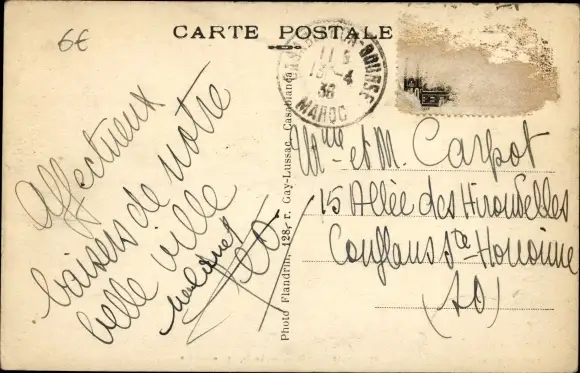 6€
CARTE POSTALE
CASABLANCA-BOURSE
11
13-4
38
MAROC
Affectueux
baisers de notre
belle ville
Photo Flandrin, 128, r. Gay-Lussac, Casablanca
Mme et M. Carpot
15 Allée des Hirondelles
Conflans Ste-Honorine
(SO)